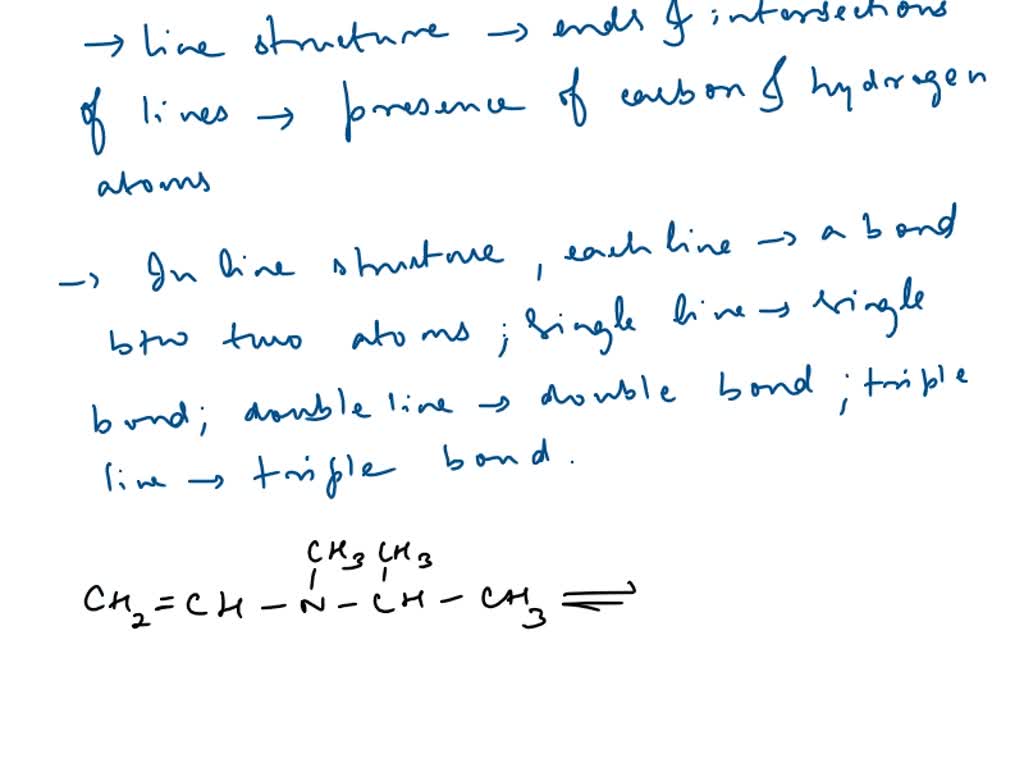 → line structure → ends & intersections
of lines → presence of carbon & hydrogen
atoms
→ In line structure, each line → a bond
btw two atoms; single line → single
bond; double line → double bond; triple
line → triple bond.
CH3 CH3
CH2=CH-N-CH-CH3 ⇌